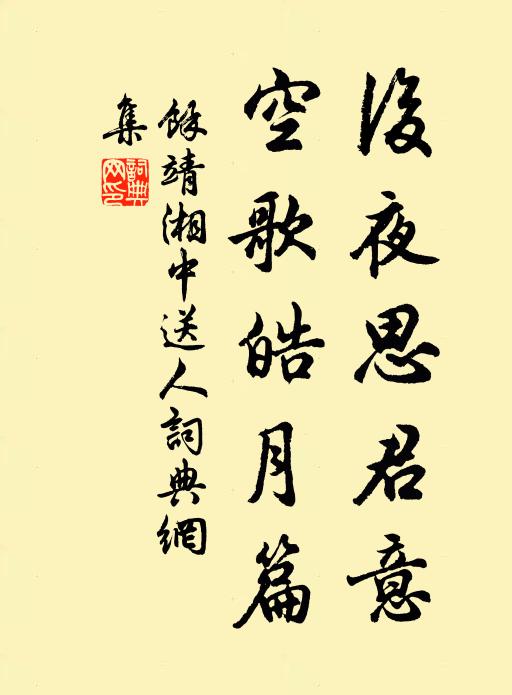 後夜思君意
空歌皓月篇
餘靖湘中送人詞典網
集
詞典網印